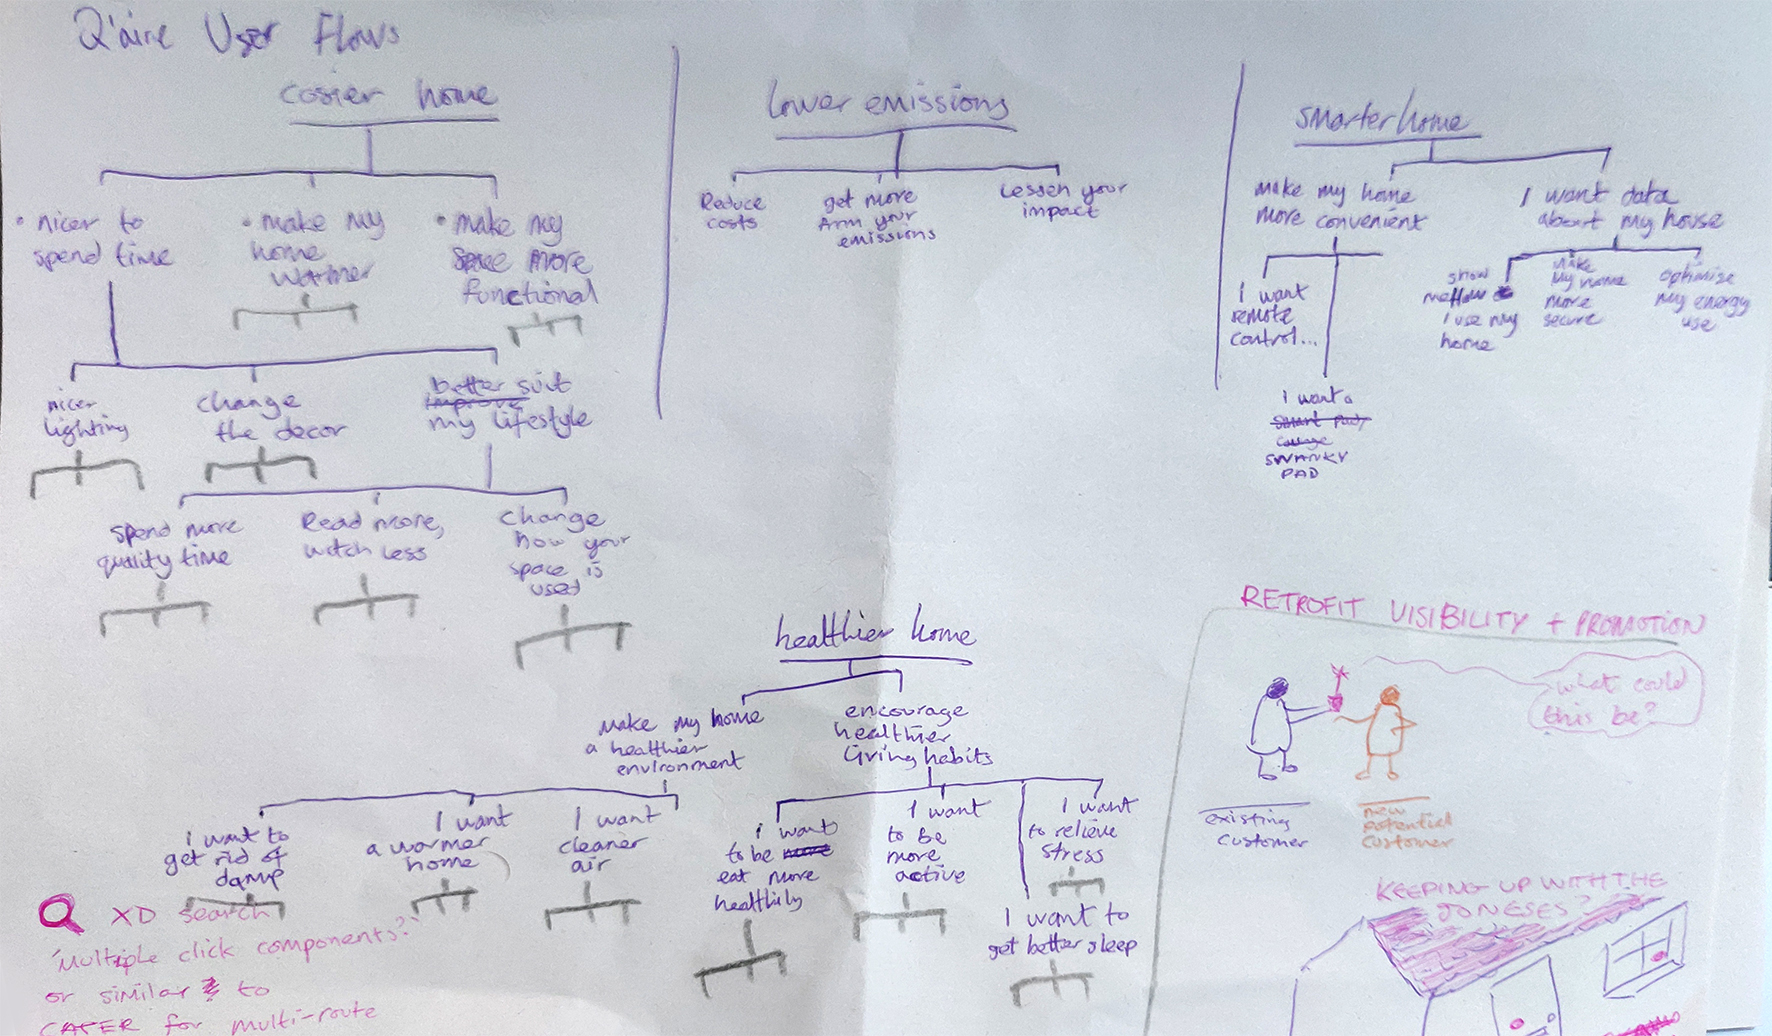 Q'aire User Flows
cosier home
• nicer to
spend time
• make my
home
warmer
• make my
space more
functional
nicer
lighting
change
the decor
better suit
improve
my lifestyle
spend more
quality time
Read more,
watch less
change
how your
space is
used
lower emissions
Reduce
costs
get more
from your
emissions
Lessen your
impact
smarter home
make my home
more convenient
I want
remote
control...
I want a
smart pad,
SWANKY
PAD
I want data
about my house
show
me how
I use my
home
make
my home
more
secure
optimise
my energy
use
healthier home
make my home
a healthier
environment
I want to
get rid of
damp
I want
a warmer
home
I want
cleaner
air
encourage
healthier
living habits
I want
to be more
eat more
healthily
I want
to be
more
active
I want
to relieve
stress
I want to
get better sleep
XD search
'multiple click components?'
or similar to
CATER for multi-route
RETROFIT VISIBILITY + PROMOTION
what could
this be?
existing
customer
new
potential
customer
KEEPING UP WITH THE
JONESES?